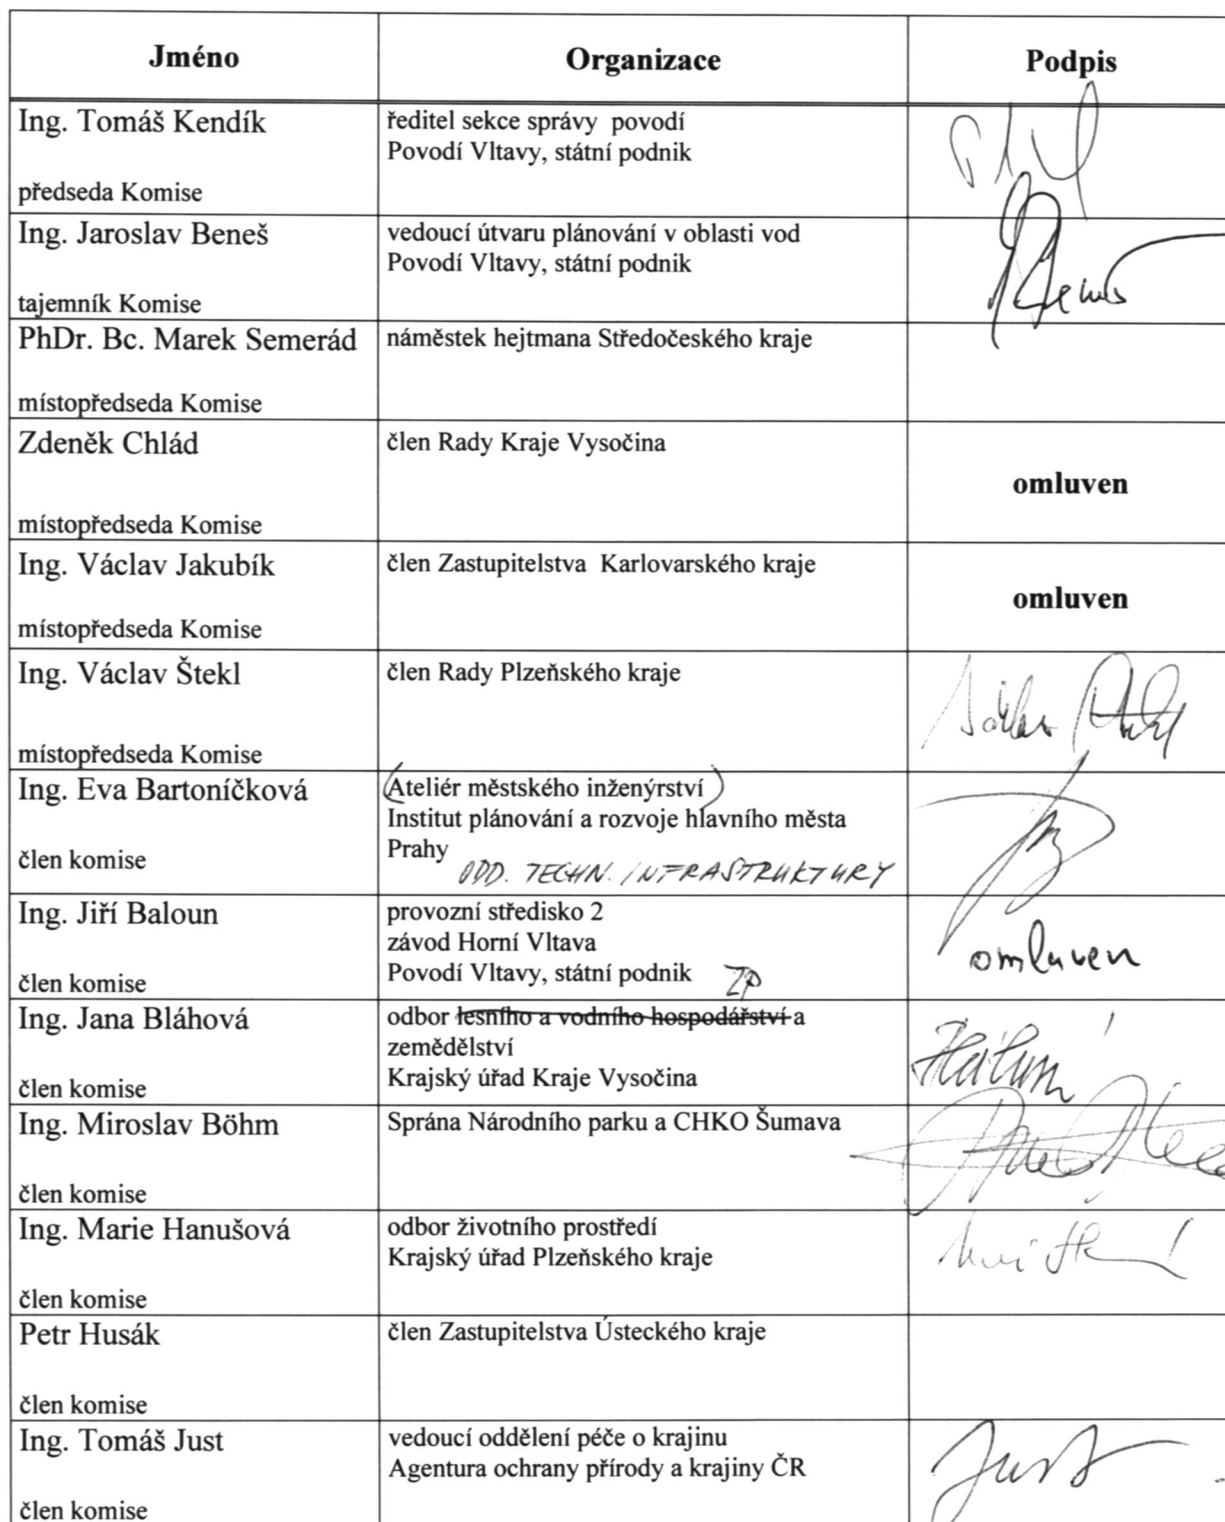 Jméno Organizace Podpis
Ing. Tomáš Kendík
předseda Komise
ředitel sekce správy povodí
Povodí Vltavy, státní podnik
Ing. Jaroslav Beneš
tajemník Komise
vedoucí útvaru plánování v oblasti vod
Povodí Vltavy, státní podnik
PhDr. Bc. Marek Semerád
místopředseda Komise
náměstek hejtmana Středočeského kraje
Zdeněk Chlád
místopředseda Komise
člen Rady Kraje Vysočina
omluven
Ing. Václav Jakubík
místopředseda Komise
člen Zastupitelstva Karlovarského kraje
omluven
Ing. Václav Štekl
místopředseda Komise
člen Rady Plzeňského kraje
Ing. Eva Bartoníčková
člen komise
(Ateliér městského inženýrství)
Institut plánování a rozvoje hlavního města
Prahy
ODD. TECHN. INFRASTRUKTURY
Ing. Jiří Baloun
člen komise
provozní středisko 2
závod Horní Vltava
Povodí Vltavy, státní podnik
omluven
Ing. Jana Bláhová
člen komise
ŽP
odbor lesního a vodního hospodářství a
zemědělství
Krajský úřad Kraje Vysočina
Ing. Miroslav Böhm
člen komise
Sprána Národního parku a CHKO Šumava
Ing. Marie Hanušová
člen komise
odbor životního prostředí
Krajský úřad Plzeňského kraje
Petr Husák
člen komise
člen Zastupitelstva Ústeckého kraje
Ing. Tomáš Just
člen komise
vedoucí oddělení péče o krajinu
Agentura ochrany přírody a krajiny ČR
Just